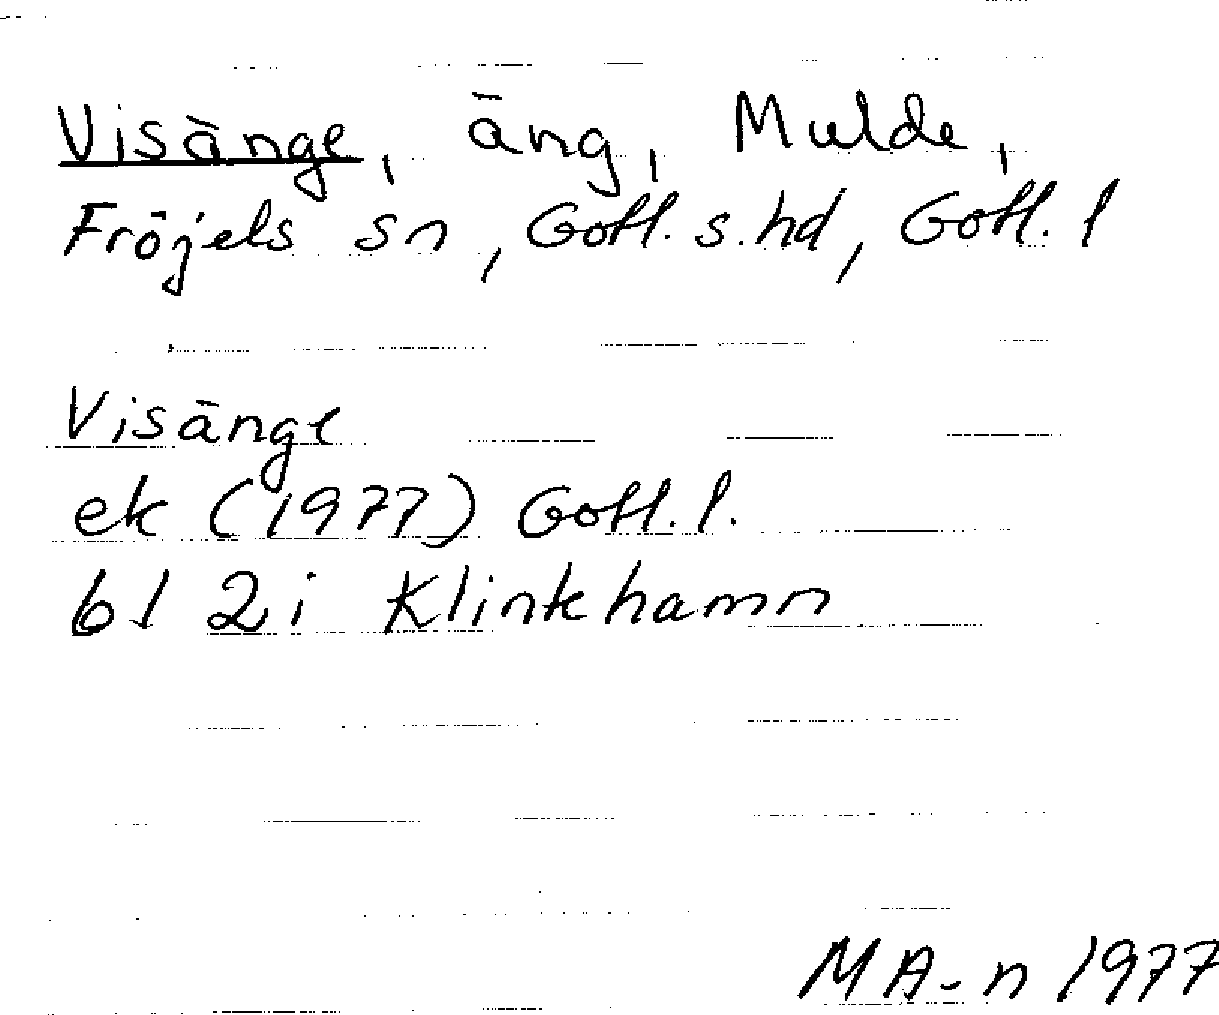 Visänge, äng, Mulde,
Fröjels sn, Gotl. s. hd, Gotl. l
Visänge
ek (1977) Gotl. l.
bl 2i Klinkhamn
MA-n 1977